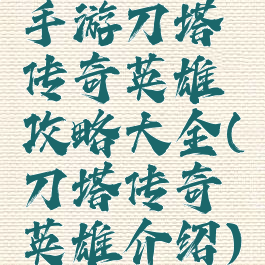 手游刀塔
传奇英雄
攻略大全(
刀塔传奇
英雄介绍)